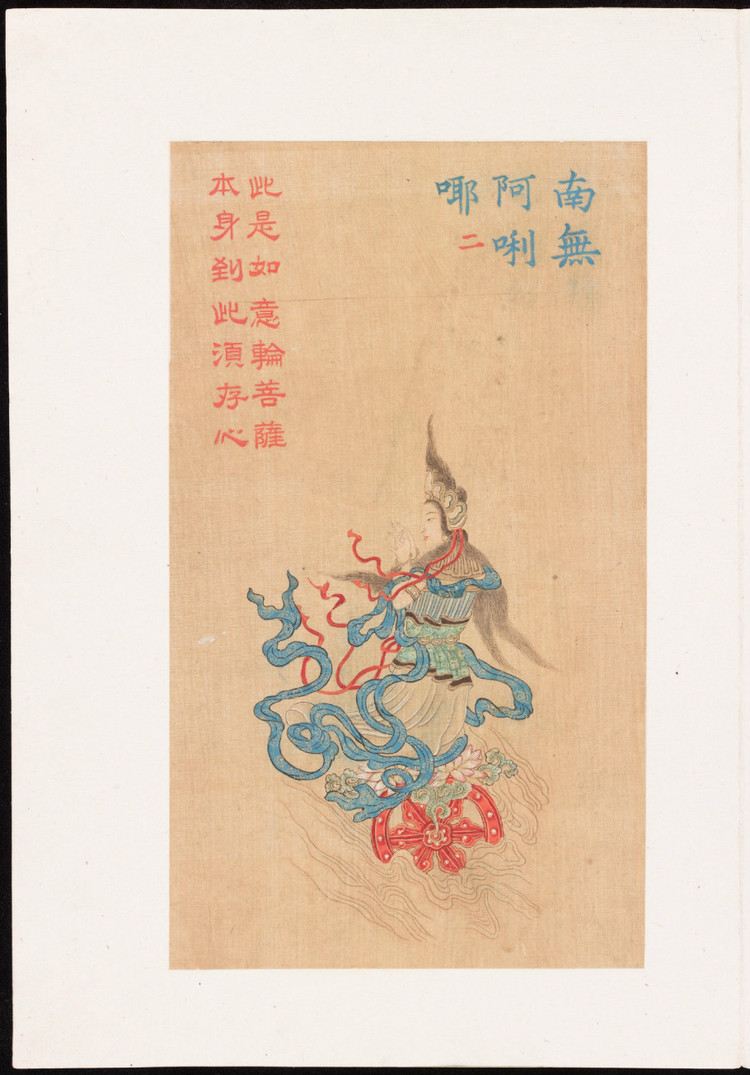 南無
阿唎
耶二
此是如意輪菩薩
本身到此須存心